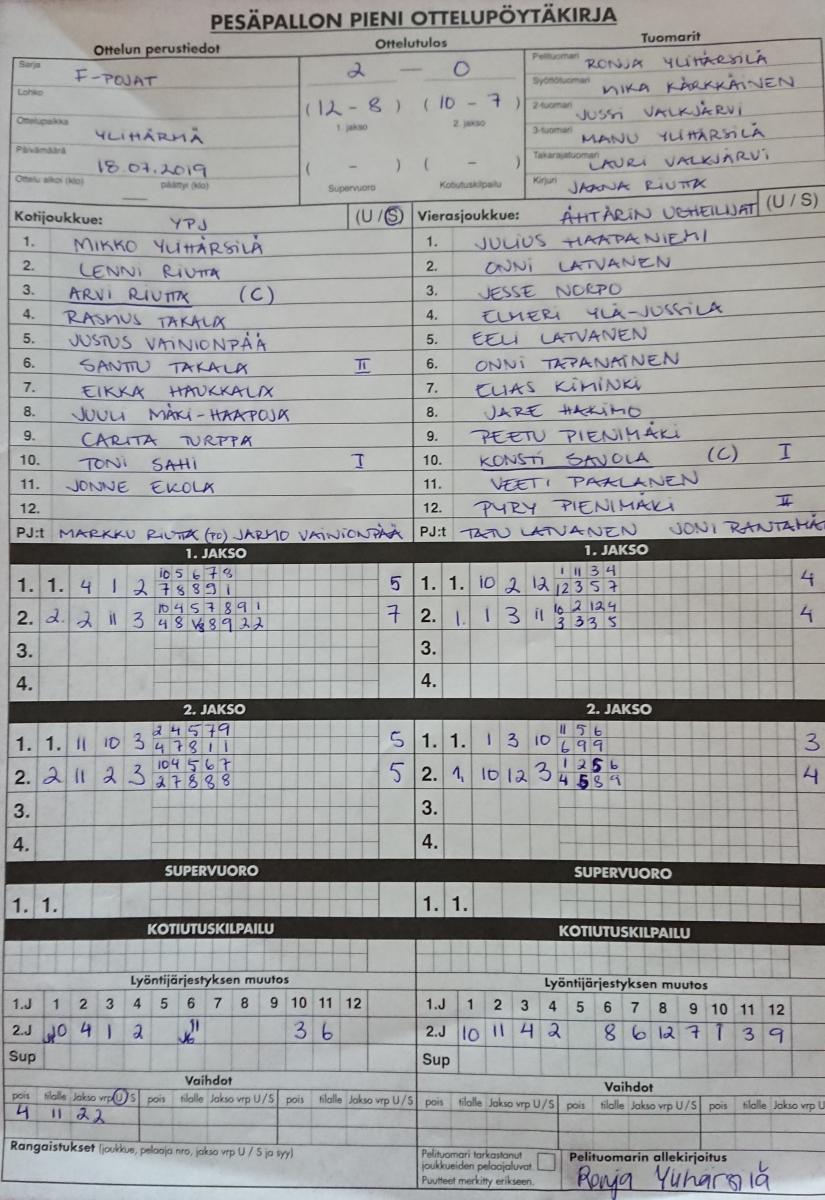 PESÄPALLON PIENI OTTELUPÖYTÄKIRJA
Ottelun perustiedot
Sarja F-POJAT
Lohko
Ottelupaikka YLIHÄRMÄ
Päivämäärä 18.07.2019
Ottelu alkoi (klo) — päättyi (klo)
Ottelutulos
2 — 0
(12 - 8) (10 - 7)
1. jakso 2. jakso
( - ) ( - )
Supervuoro Kotiutuskilpailu
Tuomarit
Pelituomari RONJA YLIHÄRSILÄ
Syöttötuomari MIKA KÄRKKÄINEN
2-tuomari JUSSI VALKJÄRVI
3-tuomari MANU YLIHÄRSILÄ
Takarajatuomari LAURI VALKJÄRVI
Kirjuri JAANA RIUTTA
Kotijoukkue: YPJ (U / S)
1. MIKKO YLIHÄRSILÄ
2. LENNI RIUTTA
3. ARVI RIUTTA (C)
4. RASMUS TAKALA
5. JUSTUS VAINIONPÄÄ
6. SANTTU TAKALA II
7. EIKKA HAUKKALA
8. JUULI MÄKI-HAAPOJA
9. CARITA TURPPA
10. TONI SAHI I
11. JONNE EKOLA
12.
PJ:t MARKKU RIUTTA (PO) JARMO VAINIONPÄÄ
Vierasjoukkue: ÄHTÄRIN URHEILIJAT (U / S)
1. JULIUS HAAPANIEMI
2. ONNI LATVANEN
3. JESSE NORPO
4. ELMERI YLÄ-JUSSILA
5. EELI LATVANEN
6. ONNI TAPANAINEN
7. ELIAS KIMINKI
8. JARE HAKIMO
9. PEETU PIENIMÄKI
10. KONSTI SAVOLA (C) I
11. VEETI PAALANEN
12. PYRY PIENIMÄKI II
PJ:t TATU LATVANEN JONI RANTAMÄ
1. JAKSO
10 5 6 7 8
1. 1. 4 1 2 7 8 8 9 1 5
10 4 5 7 8 9 1
2. 2. 2 11 3 4 8 8 9 2 2 7
3.
4.
1. JAKSO
1 11 3 4
1. 1. 10 2 12 12 3 5 7 4
10 2 12 4
2. 1. 1 3 11 3 3 3 5 4
3.
4.
2. JAKSO
2 4 5 7 9
1. 1. 11 10 3 4 7 8 1 1 5
10 4 5 6 7
2. 2 11 2 3 2 7 8 8 8 5
3.
4.
2. JAKSO
11 5 6
1. 1. 1 3 10 6 9 9 3
1 2 5 6
2. 1. 10 12 3 4 5 8 9 4
3.
4.
SUPERVUORO
1. 1.
SUPERVUORO
1. 1.
KOTIUTUSKILPAILU
KOTIUTUSKILPAILU
Lyöntijärjestyksen muutos
1.J 1 2 3 4 5 6 7 8 9 10 11 12
2.J 10 4 1 2 11 3 6
Sup
Lyöntijärjestyksen muutos
1.J 1 2 3 4 5 6 7 8 9 10 11 12
2.J 10 11 4 2 8 6 12 7 1 3 9
Sup
Vaihdot
pois tilalle Jakso vrp U S pois tilalle Jakso vrp U / S pois tilalle Jakso vrp U / S
4 11 2 2
Vaihdot
pois tilalle Jakso vrp U / S pois tilalle Jakso vrp U / S pois tilalle Jakso vrp U
Rangaistukset (joukkue, pelaaja nro, jakso vrp U / S ja syy)
Pelituomari tarkastanut
joukkueiden pelaajaluvat
Puutteet merkitty erikseen.
Pelituomarin allekirjoitus
Ronja Ylihärsilä